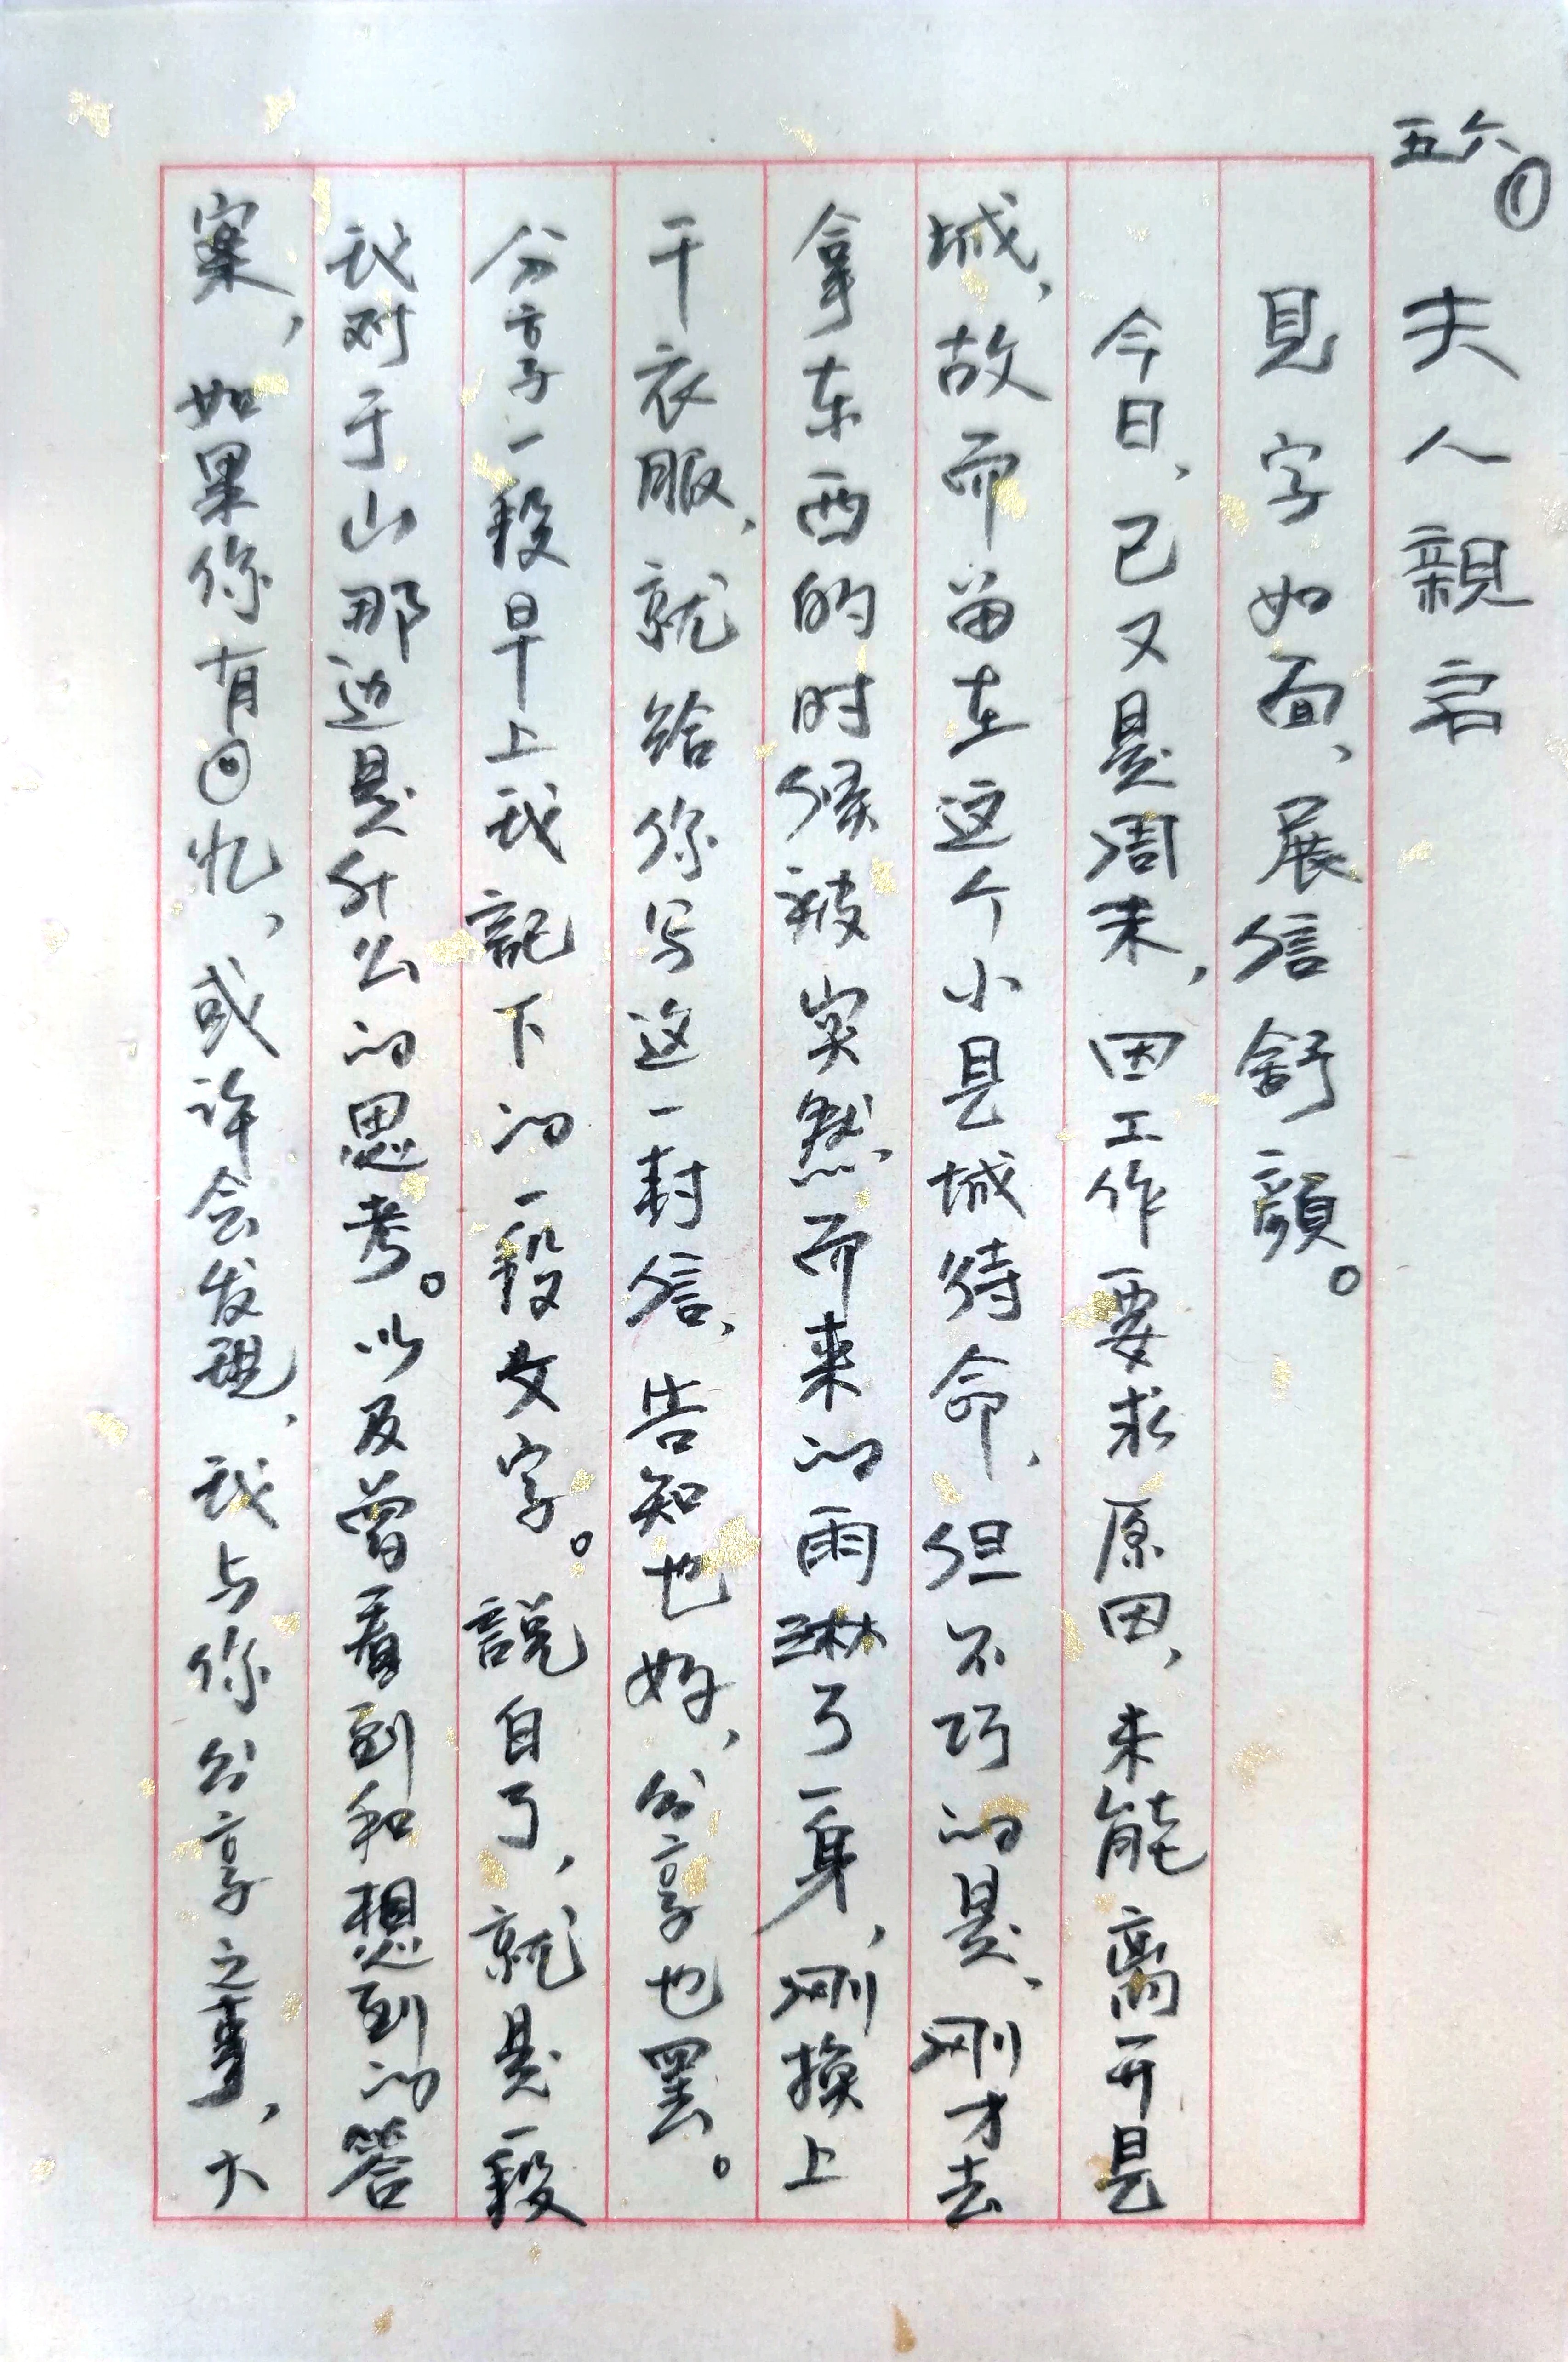 五六①
夫人親启
見字如面、展信舒顔。
今日、已又是周末，因工作要求原因，未能离开县
城，故而留在这个小县城待命，但不巧的是、刚才去
拿东西的时候被突然而来的雨淋了一身，刚换上
干衣服、就给你写这一封信、告知也好，分享也罢。
分享一段早上我記下的一段文字。説白了，就是一段
我对于山那边是什么的思考。以及曾看到和想到的答
案，如果你有回忆，或许会发现、我与你分享之事，大